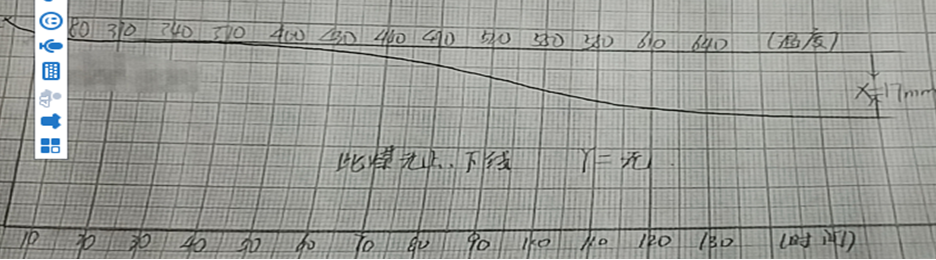 80 310 340 370 400 430 460 490 520 550 580 610 640 (温度)
X=17mm
此煤无上.下线 Y=无.
10 20 30 40 50 60 70 80 90 100 110 120 130 (时间)